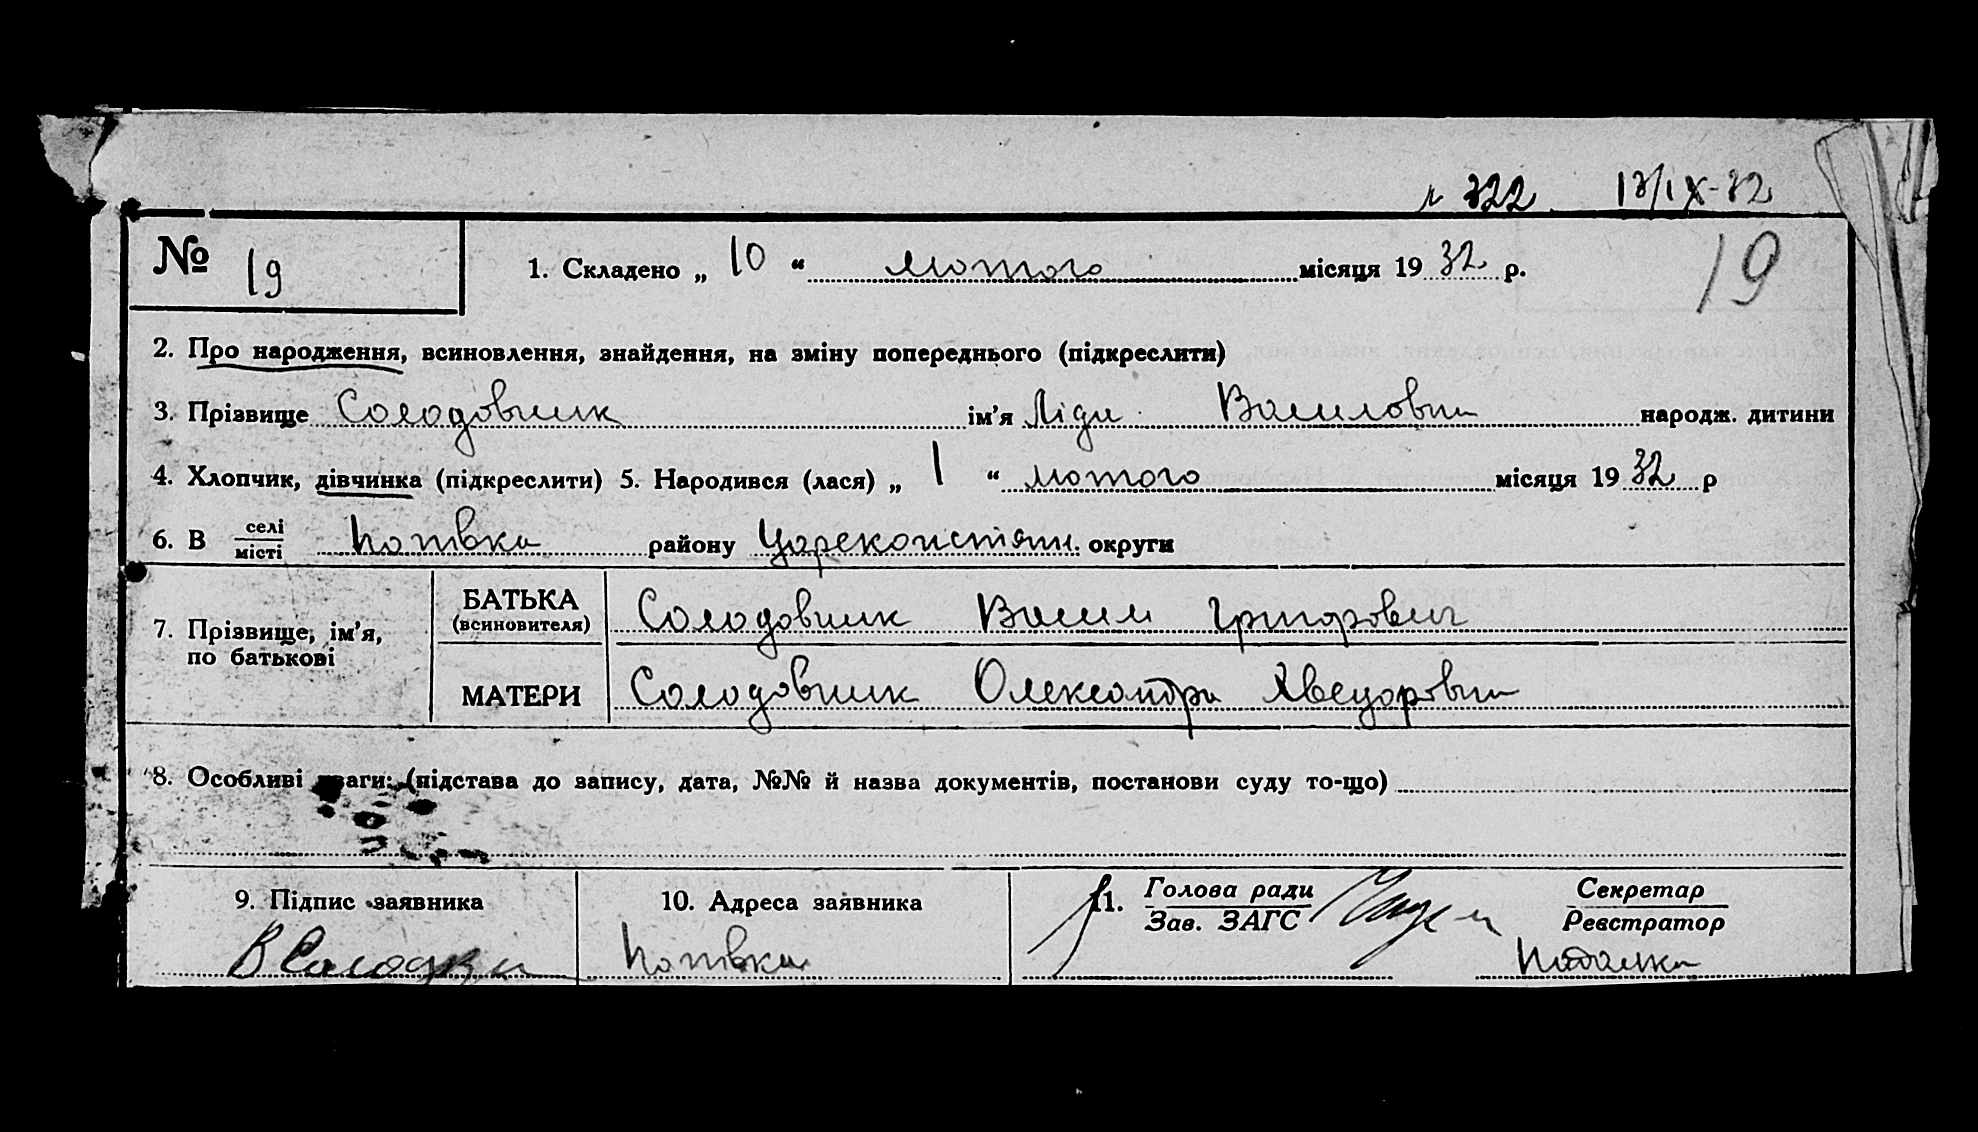 № 322 13/IX-32
№ 19 1. Складено „ 10 “ лютого місяця 1932 р. 19
2. Про народження, всиновлення, знайдення, на зміну попереднього (підкреслити)
3. Прізвище Солодовник ім’я Ліди Василовни народж. дитини
4. Хлопчик, дівчинка (підкреслити) 5. Народився (лася) „ 1 “ лютого місяця 1932 р
6. В селі
місті Котівка району Цареконстян. округи
7. Прізвище, ім’я,
по батькові
БАТЬКА
(всиновителя)
Солодовник Василь Григорович
МАТЕРИ Солодовник Олександра Хведоровна
8. Особливі уваги: (підстава до запису, дата, №№ й назва документів, постанови суду то-що)
9. Підпис заявника 10. Адреса заявника 11. Голова ради
Зав. ЗАГС
Секретар
Реєстратор
Котівка